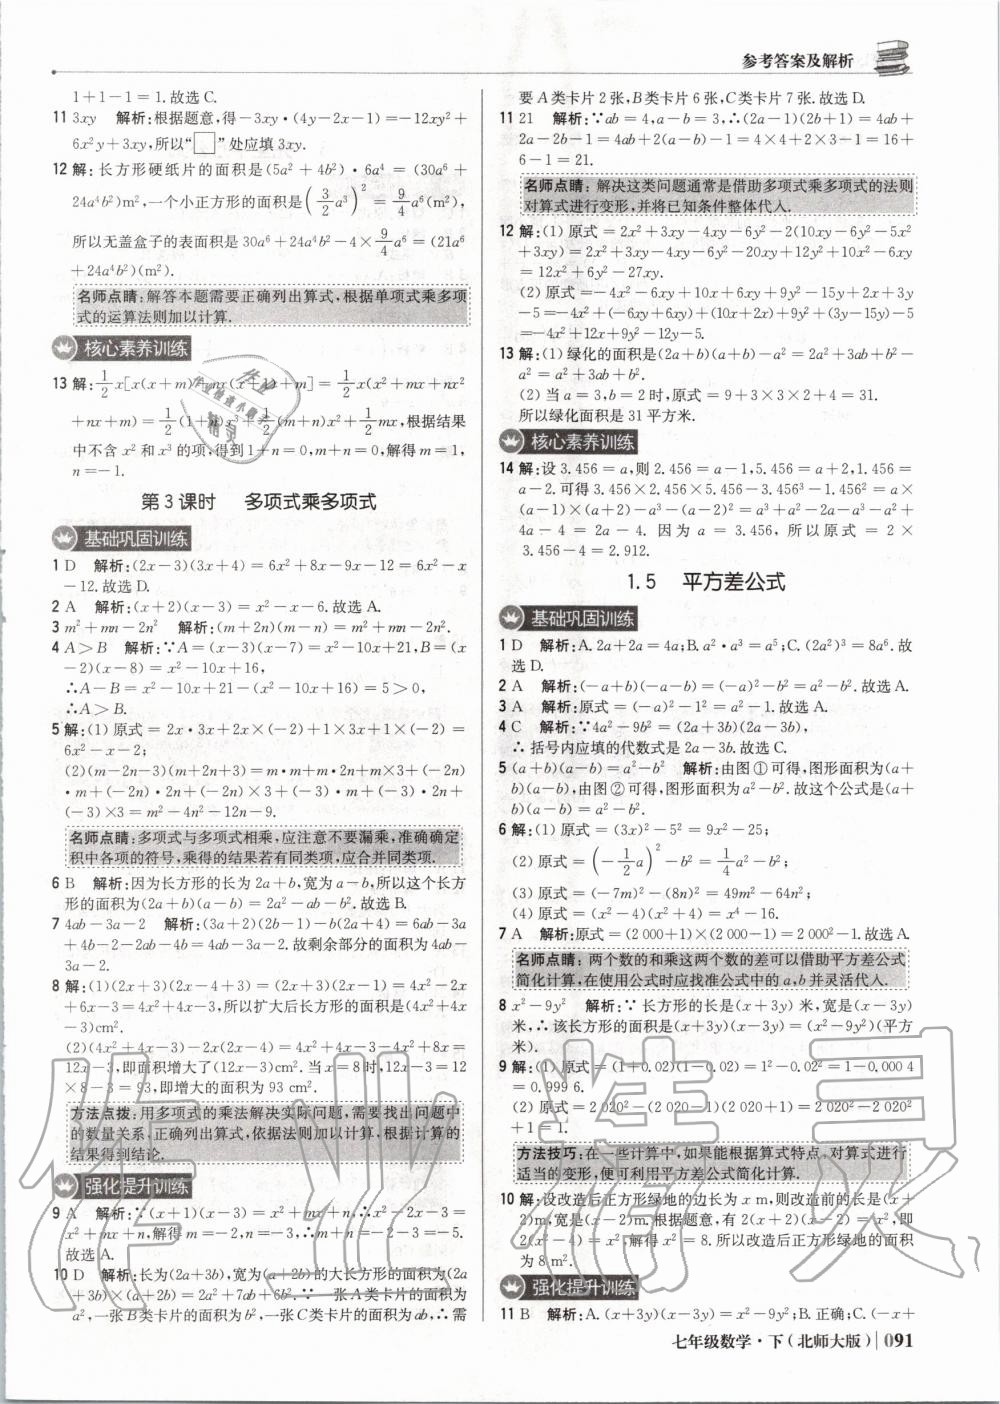 参考答案及解析
1+1-1=1.故选C.
11 3xy 解析:根据题意,得-3xy·(4y-2x-1)=-12xy²+
6x²y+3xy,所以“□”处应填3xy.
12 解:长方形硬纸片的面积是(5a²+4b²)·6a⁴=(30a⁶+
24a⁴b²)m²,一个小正方形的面积是(3/2 a³)²=9/4 a⁶(m²),
所以无盖盒子的表面积是30a⁶+24a⁴b²-4×9/4 a⁶=(21a⁶
+24a⁴b²)(m²).
名师点睛:解答本题需要正确列出算式,根据单项式乘多项
式的运算法则加以计算.
核心素养训练
13 解:1/2 x[x(x+m)+nx(x+1)+m]=1/2 x(x²+mx+nx²
+nx+m)=1/2(1+n)x³+1/2(m+n)x²+1/2 mx,根据结果
中不含x²和x³的项,得到1+n=0,m+n=0,解得m=1,
n=-1.
第3课时 多项式乘多项式
基础巩固训练
1 D 解析:(2x-3)(3x+4)=6x²+8x-9x-12=6x²-x
-12.故选D.
2 A 解析:(x+2)(x-3)=x²-x-6.故选A.
3 m²+mn-2n² 解析:(m+2n)(m-n)=m²+mn-2n².
4 A>B 解析:∵A=(x-3)(x-7)=x²-10x+21,B=(x
-2)(x-8)=x²-10x+16,
∴A-B=x²-10x+21-(x²-10x+16)=5>0,
∴A>B.
5 解:(1)原式=2x·3x+2x×(-2)+1×3x+1×(-2)=
6x²-x-2;
(2)(m-2n-3)(m+2n+3)=m·m+m·2n+m×3+(-2n)
·m+(-2n)·2n+(-2n)×3+(-3)·m+(-3)·2n+
(-3)×3=m²-4n²-12n-9.
名师点睛:多项式与多项式相乘,应注意不要漏乘,准确确定
积中各项的符号,乘得的结果若有同类项,应合并同类项.
6 B 解析:因为长方形的长为2a+b,宽为a-b,所以这个长方
形的面积为(2a+b)(a-b)=2a²-ab-b².故选B.
7 4ab-3a-2 解析:(3a+2)(2b-1)-b(2a+4)=6ab-3a
+4b-2-2ab-4b=4ab-3a-2.故剩余部分的面积为4ab-
3a-2.
8 解:(1)(2x+3)(2x-4+3)=(2x+3)(2x-1)=4x²-2x
+6x-3=4x²+4x-3,所以扩大后长方形的面积是(4x²+4x
-3)cm².
(2)(4x²+4x-3)-2x(2x-4)=4x²+4x-3-4x²+8x=
12x-3,即面积增大了(12x-3)cm².当x=8时,12x-3=12
×8-3=93,即增大的面积为93 cm².
方法点拨:用多项式的乘法解决实际问题,需要找出问题中
的数量关系,正确列出算式,依据法则加以计算,根据计算的
结果得到结论.
强化提升训练
9 A 解析:∵(x+1)(x-3)=x²+mx+n,∴x²-2x-3=
x²+mx+n,解得m=-2,n=-3,∴m+n=-2-3=-5.
故选A.
10 D 解析:长为(2a+3b),宽为(a+2b)的大长方形的面积为(2a
+3b)×(a+2b)=2a²+7ab+6b².∵一张A类卡片的面积为
a²,一张B类卡片的面积为b²,一张C类卡片的面积为ab,∴需
要A类卡片2张,B类卡片6张,C类卡片7张.故选D.
11 21 解析:∵ab=4,a-b=3,∴(2a-1)(2b+1)=4ab+
2a-2b-1=4ab+2(a-b)-1=4×4+2×3-1=16+
6-1=21.
名师点睛:解决这类问题通常是借助多项式乘多项式的法则
对算式进行变形,并将已知条件整体代入.
12 解:(1)原式=2x²+3xy-4xy-6y²-2(10xy-6y²-5x²
+3xy)=2x²+3xy-4xy-6y²-20xy+12y²+10x²-6xy
=12x²+6y²-27xy.
(2)原式=-4x²-6xy+10x+6xy+9y²-15y+2x+3y
-5=-4x²+(-6xy+6xy)+(10x+2x)+9y²+(3y-15y)-5
=-4x²+12x+9y²-12y-5.
13 解:(1)绿化的面积是(2a+b)(a+b)-a²=2a²+3ab+b²-
a²=a²+3ab+b².
(2)当a=3,b=2时,原式=9+3×3×2+4=31.
所以绿化面积是31平方米.
核心素养训练
14 解:设3.456=a,则2.456=a-1,5.456=a+2,1.456=
a-2.可得3.456×2.456×5.456-3.456³-1.456²=a×
(a-1)×(a+2)-a³-(a-2)²=a³+a²-2a-a³-a²+
4a-4=2a-4.因为a=3.456,所以原式=2×
3.456-4=2.912.
1.5 平方差公式
基础巩固训练
1 D 解析:A.2a+2a=4a;B.a²·a³=a⁵;C.(2a²)³=8a⁶.故
选D.
2 A 解析:(-a+b)(-a-b)=(-a)²-b²=a²-b².故选A.
3 A 解析:原式=(-a)²-1²=a²-1.故选A.
4 C 解析:∵4a²-9b²=(2a+3b)(2a-3b),
∴括号内应填的代数式是2a-3b.故选C.
5 (a+b)(a-b)=a²-b² 解析:由图①可得,图形面积为(a+
b)(a-b),由图②可得,图形面积为a²-b².故这个公式是(a+
b)(a-b)=a²-b².
6 解:(1)原式=(3x)²-5²=9x²-25;
(2)原式=(-1/2 a)²-b²=1/4 a²-b²;
(3)原式=(-7m)²-(8n)²=49m²-64n²;
(4)原式=(x²-4)(x²+4)=x⁴-16.
7 A 解析:原式=(2 000+1)×(2 000-1)=2 000²-1.故选A.
名师点睛:两个数的和乘这两个数的差可以借助平方差公式
简化计算,在使用公式时应找准公式中的a,b并灵活代入.
8 x²-9y² 解析:∵长方形的长是(x+3y)米,宽是(x-3y)
米,∴该长方形的面积是(x+3y)(x-3y)=(x²-9y²)(平方
米).
9 解:(1)原式=(1+0.02)(1-0.02)=1²-0.02²=1-0.000 4
=0.999 6.
(2)原式=2 020²-(2 020-1)(2 020+1)=2 020²-2 020²
+1=1.
方法技巧:在一些计算中,如果能根据算式特点,对算式进行
适当的变形,便可利用平方差公式简化计算.
10 解:设改造后正方形绿地的边长为x m,则改造前的长是(x+
2)m,宽是(x-2)m.根据题意,有2(x+2)(x-2)=x²,即
2(x²-4)=x²,解得x²=8.所以改造后正方形绿地的面积
为8 m².
强化提升训练
11 B 解析:A.(x+3y)(x-3y)=x²-9y²;B.正确;C.(-x+
七年级数学·下(北师大版)|091